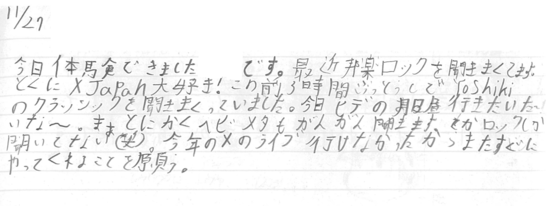 11/27
今日体験できました です。最近邦楽ロックを聞きまくてます
とくにXJapan大好き!この前3時間ぶっとうしでYoshiki
のクラシックを聞きまくっていました。今日ヒデの 行きたいた
いな〜。まぁとにかくヘビメタもがんがん聞きます。てかロックしか
聞いてない(笑)。今年のXのライブ行けなかったからまたすぐに
やってくれることを願う。